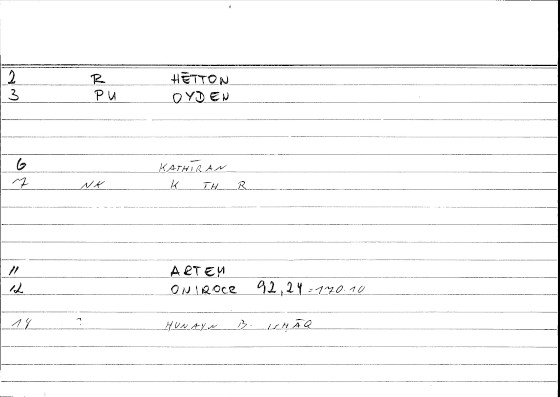 2 R HĒTTON
3 PU OYDEN
6 KATHĪRAN
7 NK K TH R
11 ARTEM
12 ONIROCR 92,24 = 170.10
14 ? HUNAYN B. ISHĀQ